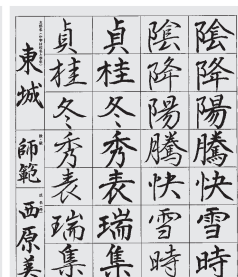 陰降陽騰快雪時
陰降陽騰快雪時
貞桂冬秀表瑞集
貞桂冬秀表瑞集
東城 師範 西原美